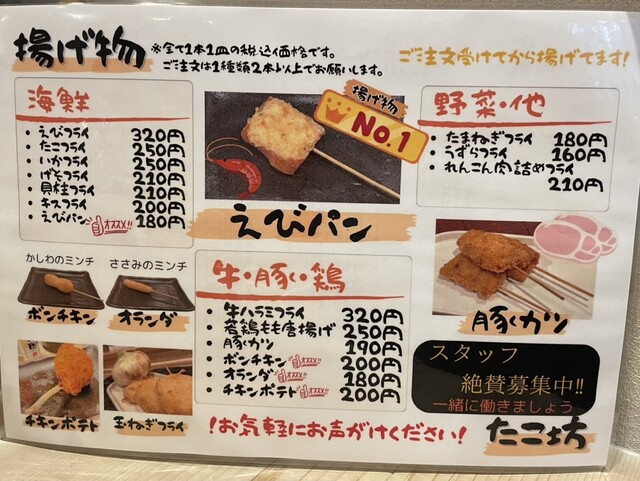 揚げ物
※全て1本1皿の税込価格です。
ご注文は1種類2本以上でお願いします。
ご注文受けてから揚げてます!
海鮮
・えびフライ 320円
・たこフライ 250円
・いかフライ 250円
・げそフライ 210円
・貝柱フライ 210円
・キスフライ 200円
・えびパン オススメ!! 180円
揚げ物
No.1
えびパン
野菜・他
・たまねぎフライ 180円
・うずらフライ 160円
・れんこん肉詰めフライ
210円
かしわのミンチ
ささみのミンチ
ボンチキン
オランダ
チキンポテト
玉ねぎフライ
牛・豚・鶏
・牛ハラミフライ 320円
・若鶏もも唐揚げ 250円
・豚カツ 190円
・ボンチキン オススメ!! 200円
・オランダ オススメ!! 180円
・チキンポテト オススメ!! 200円
豚カツ
スタッフ
絶賛募集中!!
一緒に働きましょう
!お気軽にお声がけください!
たこ坊